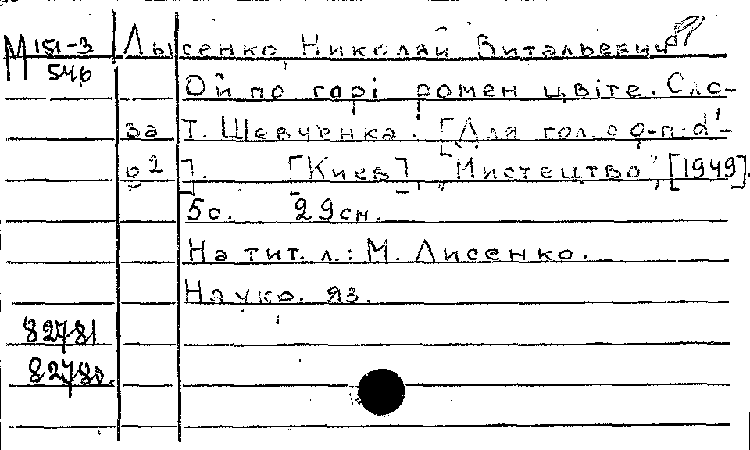 М 151-3
546
Лысенко, Николай Витальевич
Ой по горі ромен цвіте. Сло-
ва Т. Шевченка. [Для гол. с ф-п. d'-
g²]. [Киев], "Мистецтво", [1949].
5с. 29см.
На тит. л.: М. Лисенко.
На укр. яз.
82781
82780.